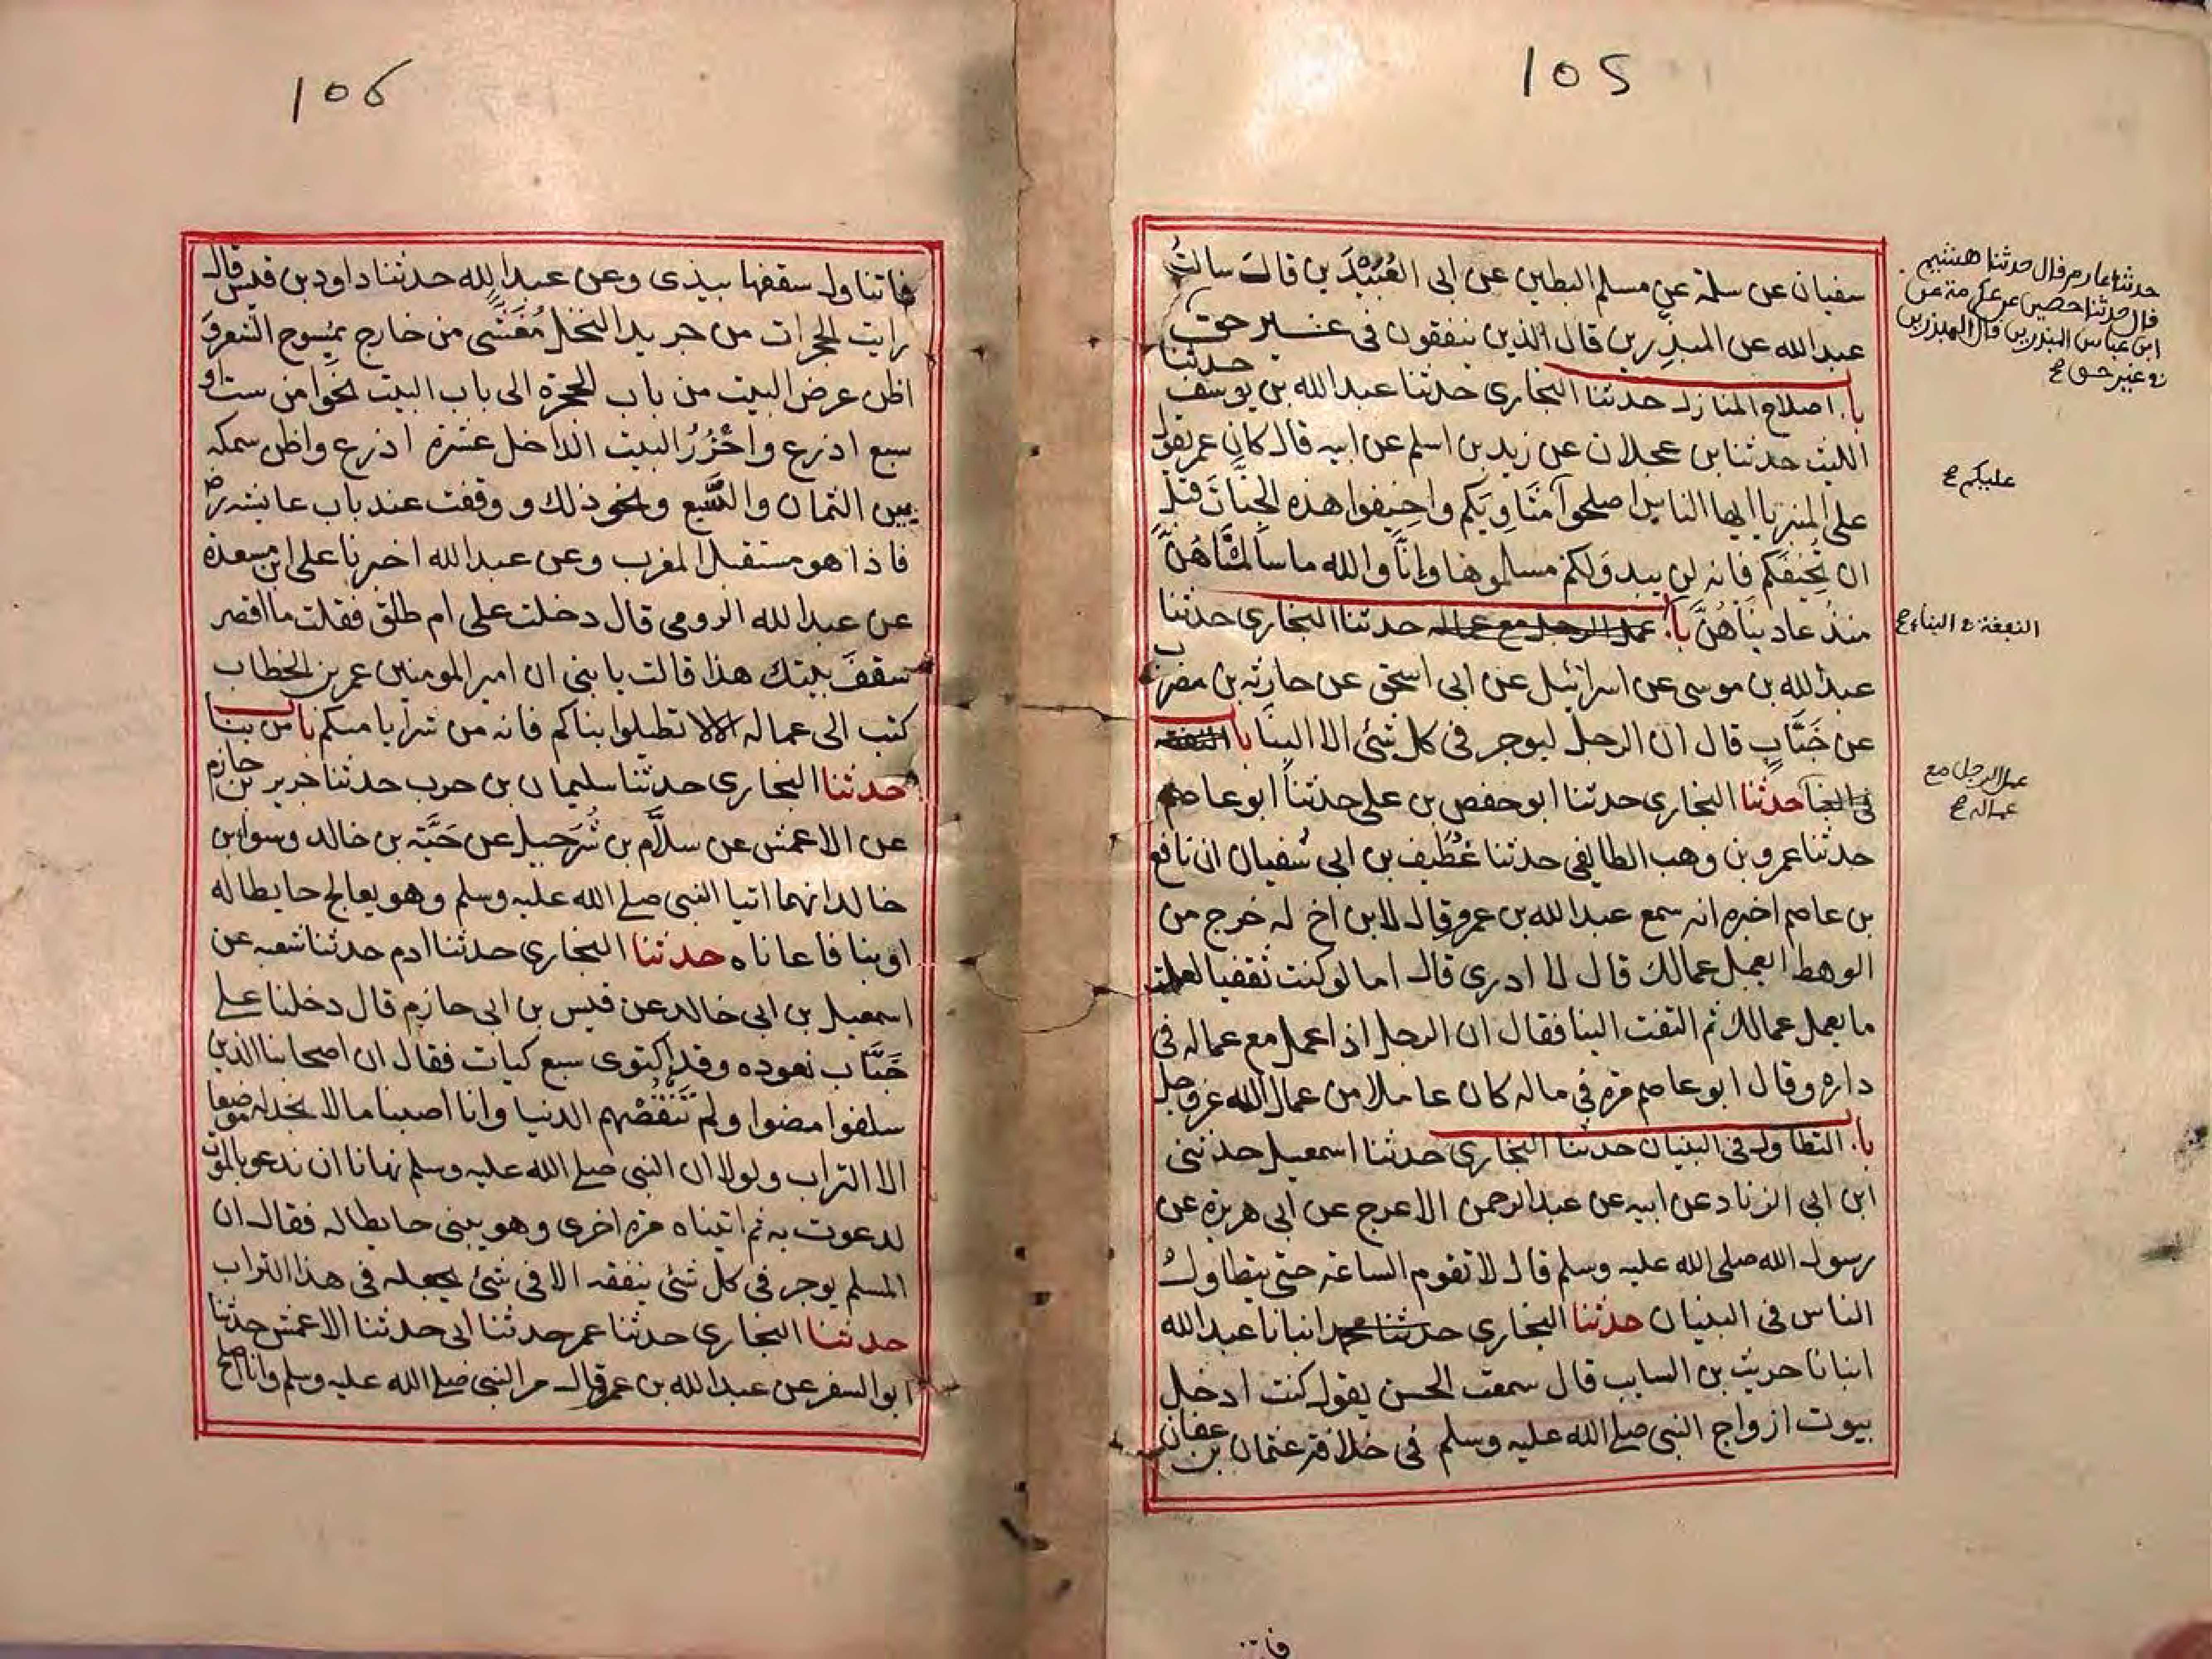 105
سفيان عن سلمة عن مسلم البطين عن ابى العُبَيْدَين قال سالتُ
عبد الله عن المبذرين قال الذين ينفقون فى غير حق
با. اصلاح المنازل حدثنا البخارى حدثنا عبد الله بن يوسف حدثنا
الليث حدثنا بن عجلان عن زيد بن اسلم عن ابيه قال كان عمر يقول
على المنبر يا ايها الناس اصلحوا مَثَاوِيَكم واخيفوا هذه الجِنَّانَ قبل
ان تُخِيفَكم فانه لن يبدوَ لكم مسلموها وإنَّا والله ما سالمنَاهُنَّ
منذُ عاديناهُنَّ با. عمل الرجل مع عماله حدثنا البخارى حدثنا
عبد الله بن موسى عن اسرائيل عن ابى اسحق عن حارثه بن مضرب
عن خَبَّابٍ قال ان الرجل ليوجر فى كل شئ الا البنا با النفقة
فى البنا حدثنا البخارى حدثنا ابو حفص بن على حدثنا ابو عاصم
حدثنا عمرو بن وهب الطايفى حدثنا غُطَيف بن ابى سُفيان ان نافع
بن عاصم اخبره انه سمع عبد الله بن عمرو قال لابن اخ له خرج من
الوهط ايعمل عمالك قال لا ادرى قال اما لو كنت ثقفيا لعلمت
ما يعمل عمالك ثم التفت الينا فقال ان الرجل اذا عمل مع عماله فى
داره وقال ابو عاصم مره فى ماله كان عاملا من عمال الله عز وجل
با. التطاول فى البنيان حدثنا البخارى حدثنا اسمعيل حدثنى
ابن ابى الزناد عن ابيه عن عبد الرحمن الاعرج عن ابى هريره عن
رسول الله صلى الله عليه وسلم قال لا تقوم الساعة حتى يتطاول
الناس فى البنيان حدثنا البخارى حدثنا محمد انبانا عبد الله
انبانا حريث بن السايب قال سمعت الحسن يقول كنت ادخل
بيوت ازواج النبى صلے الله عليه وسلم فى خلافة عثمان بن عفان
حدثنا عارم قال حدثنا هشيم
قال حدثنا حصين عن عكرمة عن
ابن عباس المبذرين قال المبذرين
فى غير حق ع
عليكم ع
النفقة فى البناء ع
عمل الرجل مع
عماله ع
106
فاتناول سقفها بيدى وعن عبد الله حدثنا داود بن قيس قال
رايت الحجرات من جريد النخل مُغَشَّى من خارج بمُسوح الشعر و
اظن عرض البيت من باب الحجرة الى باب البيت نحوا من ست او
سبع اذرع واحْزُرُ البيت الداخل عشرة اذرع واظن سمكه
بين الثمان والسَّبع ونحو ذلك و وقفت عند باب عايشه رض
فاذا هو مستقبل المغرب وعن عبد الله اخبرنا على ابن مسعدة
عن عبد الله الرومى قال دخلت على ام طلق فقلت ما اقصر
سقفَ بيتك هذا قالت يا بنى ان امير المومنين عمر بن الخطاب
كتب الى عماله الا لا تطيلوا بناكم فانه من شر ايامكم با من بنا
حدثنا البخارى حدثنا سليمان بن حرب حدثنا جرير بن حازم
عن الاعمش عن سلَّام بن شُرَحبيل عن حَبَّة بن خالد وسوا بن
خالد انهما اتيا النبى صلے الله عليه وسلم وهو يعالج حايطا له
او بنا فاعاناه حدثنا البخارى حدثنا ادم حدثنا شعبه عن
اسمعيل بن ابى خالد عن قيس بن ابى حازم قال دخلنا علے
خَبَّاب نعوده وقد اكتوى سبع كيات فقال ان اصحابنا الذين
سلفوا مضوا ولم تَنْقُصْهم الدنيا وانا اصبنا ما لا نجد له موضعا
الا التراب ولولا ان النبى صلے الله عليه وسلم نهانا ان ندعو بالموت
لدعوت به ثم اتيناه مره اخرى وهو يبنى حايطا له فقال ان
المسلم يوجر فى كل شئ ينفقه الا فى شئ يجعله فى هذا التراب
حدثنا البخارى حدثنا عمر حدثنا ابى حدثنا الاعمش حدثنا
ابو السفر عن عبد الله بن عمرو قال مر النبى صلے الله عليه وسلم وانا اصلح